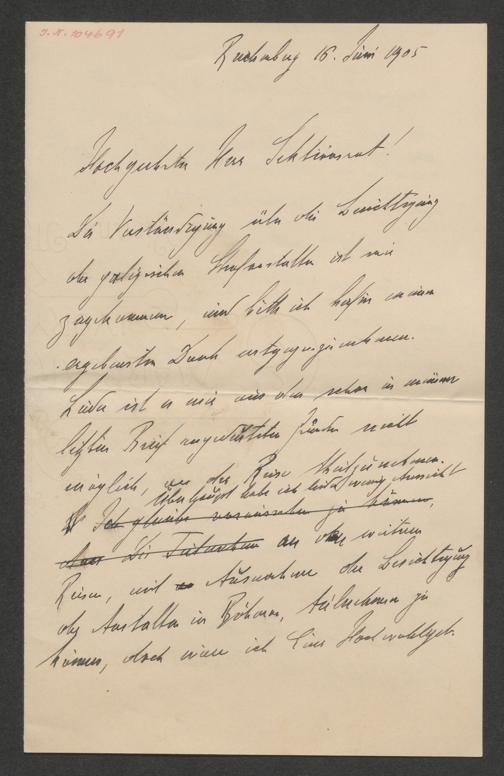 I.N. 104691
Reichenberg 16. Juni 1905
Hochgeehrter Herr Sektionsrat!
Die Verständigung über die Besichtigung
der galizischen Strafanstalten ist mir
zugekommen, und bitte ich hiefür meinen
ergebensten Dank entgegenzunehmen.
Leider ist es mir aus den schon in meinem
letzten Brief angedeuteten Gründen nicht
möglich, an der Reise theilzunehmen.
Überhaupt habe ich leider wenig Aussicht
Ich glaube voraussehen zu können,
dass die an den weitren
Reisen, mit Ausnahme der Besichtigung
der Anstalten in Böhmen, teilnehmen zu
können, doch wäre ich Euer Hochwohlgeb.